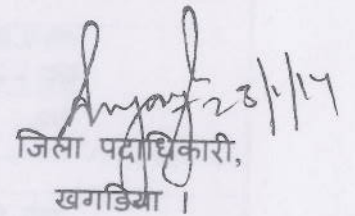 23/1/14
जिला पदाधिकारी,
खगड़िया ।